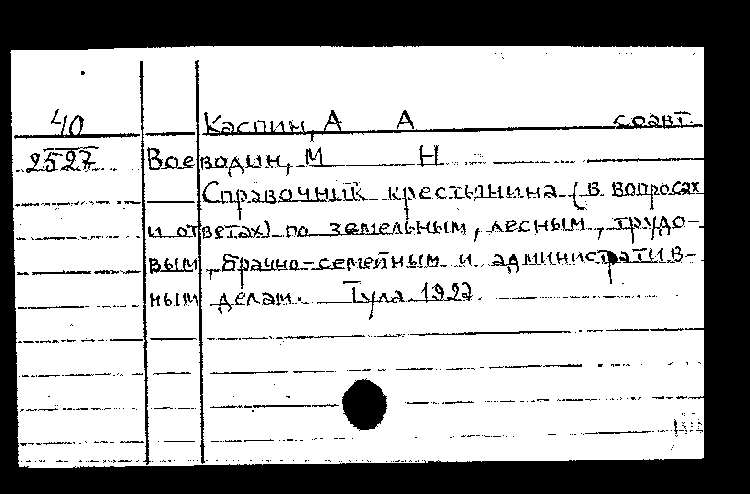 40 Каспин, А А соавт.
2527 Воеводин, М Н
Справочник крестьянина (в вопросах
и ответах) по земельным, лесным, трудо-
вым, брачно-семейным и административ-
ным делам. Тула. 1927.